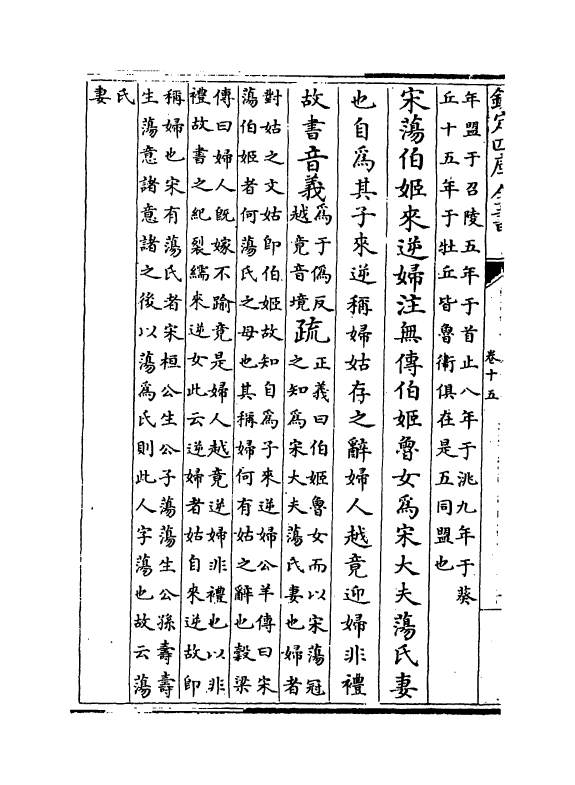 欽定四庫全書
卷十五
年盟于召陵五年于首止八年于洮九年于葵
丘十五年于牡丘皆魯衛俱在是五同盟也
宋蕩伯姬來逆婦注無傳伯姬魯女爲宋大夫蕩氏妻
也自爲其子來逆稱婦姑存之辭婦人越竟迎婦非禮
故書音義爲于僞反越竟音境疏正義曰伯姬魯女而以宋蕩冠之知爲宋大夫蕩氏妻也婦者
對姑之文姑即伯姬故知自爲子來逆婦公羊傳曰宋
蕩伯姬者何蕩氏之母也其稱婦何有姑之辭也穀梁
傳曰婦人既嫁不踰竟是婦人越竟逆婦非禮也以非
禮故書之紀裂繻來逆女此云逆婦者姑自來逆故即
稱婦也宋有蕩氏者宋桓公生公子蕩蕩生公孫壽壽
生蕩意諸意諸之後以蕩爲氏則此人字蕩也故云蕩
氏
妻